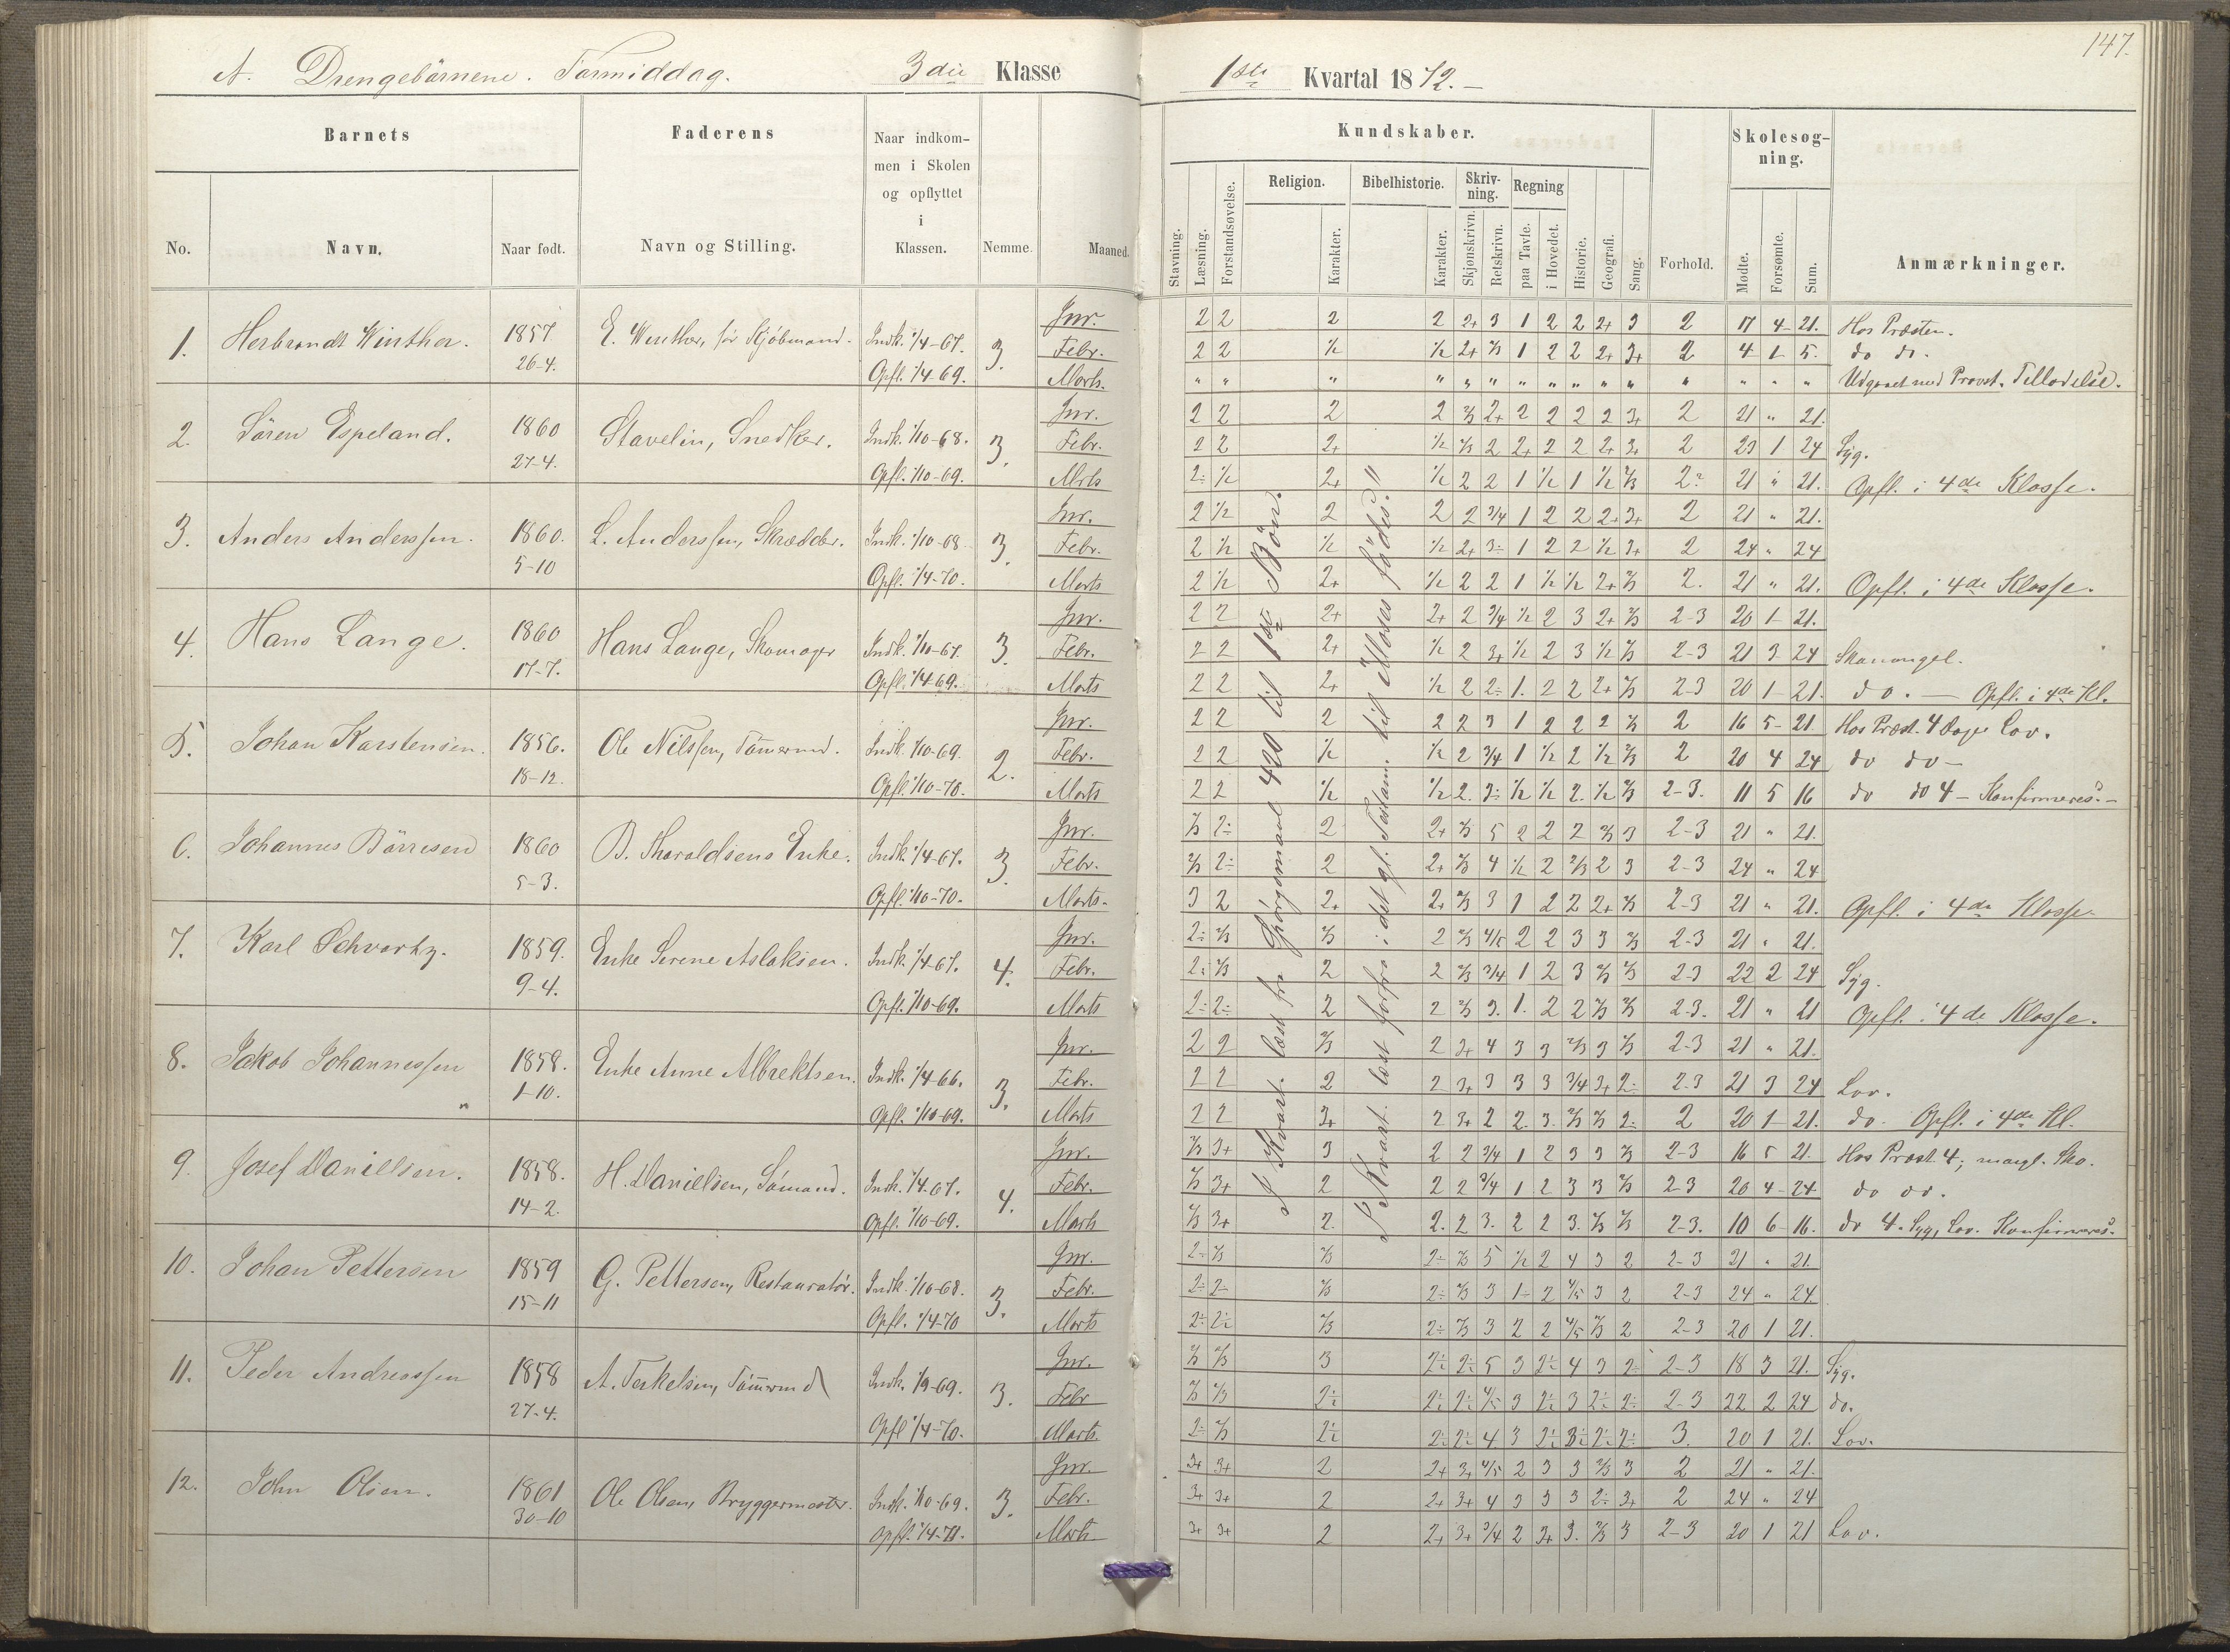 147.
A. Drengebörnene. Formiddag. 3die Klasse 1ste Kvartal 1872.
Barnets
Faderens
Naar indkom-
men i Skolen
og opflyttet
i
Klassen.
No. Navn. Naar født. Navn og Stilling. Nemme. Maaned.
Kundskaber.
Skolesøg-
ning.
Religion. Bibelhistorie. Skriv-
ning. Regning
Stavning. Læsning. Forstandsøvelse. Karakter. Karakter. Skjønskrivn. Retskrivn. paa Tavle. i Hovedet. Historie. Geografi. Sang. Forhold. Mødte. Forsømte. Sum. Anmærkninger.
1. Herbrandt Winther. 1857. 26-4. E. Winther, før Kjöbmand. Indk. 1/4-67. Opfl. 1/4-69. 3.
Jnr. 2 2 2 2 2+ 3 1 2 2 2+ 3 2 17 4 21. Hos Præsten.
Febr. 2 2 1/2 1/2 2+ 2/3 1 2 2 2+ 3+ 2 4 1 5. do do.
Marts. " " " " " " " " " " " " " " " Udgaaet med Provst. Tilladelse.
2. Sören Espeland. 1860 27-4. Stavelin, Snedker. Indk. 1/10-68. Opfl. 1/10-69. 3.
Jnr. 2 2 2 2 2/3 2+ 2 2 2 2 3+ 2 21 " 21.
Febr. 2 2 2+ 1/2 2/3 2 2+ 2 2 2+ 3+ 2 23 1 24 Syg.
Mrts 2÷ 1/2 2+ 1/2 2 2 1 1/2 1 1/2 2/3 2 21 " 21. Opfl. i 4de Klasse.
3. Anders Anderssen. 1860. 5-10 L. Anderssen, Skrædder. Indk. 1/10-68. Opfl. 1/4-70. 3.
Jnr. 2 1/2 2 2 2 3/4 1 2 2 2+ 3+ 2 21 " 21.
Febr. 2 1/2 1/2 1/2 2+ 3÷ 1 2 2 1/2 3+ 2 24 " 24
Marts 2 1/2 2+ 1/2 2 2 1 1/2 1/2 2+ 2/3 2. 21 " 21. Opfl. i 4de Klasse.
4. Hans Lange. 1860 17-7. Hans Lange, Skomager Indk. 1/10-67. Opfl. 1/4 69. 3.
Jnr. 2 2 2+ 2+ 2 3/4 1/2 2 3 2+ 2/3 2-3 20 1 21.
Febr. 2 2 2+ 1/2 2 3+ 1/2 2 3 1/2 2/3 2-3 21 3 24 Skomangel.
Marts 2 2 2+ 1/2 2 2÷ 1. 2 2 2+ 2/3 2-3 20 1 21. do. — Opfl. i 4de Kl.
5. Johan Karstensen. 1856. 18-12. Ole Nilssen, Tömermd. Indk. 1/10-69. Opfl. 1/10-70. 2.
Jnr. 2 2 2 2 2 3 1 2 2 2 2/3 2 16 5 21 Hos Præst. 4 Dage Lov.
Febr. 2 2 1/2 1/2 2 3/4 1 1/2 2 1/2 2/3 2 20 4 24 do do -
Marts 2 2 1/2 1/2 2. 3÷ 1/2 1/2 2. 1/2 2/3 2-3. 11 5 16 do do 4 - Konfirmeres. -
6. Johannes Börresen 1860 5-3. B. Tharaldsens Enke. Indk. 1/4-67. Opfl. 1/10-70. 3.
Jnr. 2/3 2÷ 2 2+ 2/3 5 2 2 2 2/3 3 2-3 21 " 21.
Febr. 2/3 2÷ 2 2+ 2/3 4 1/2 2 2/3 2 3 2-3 24 " 24
Marts. 3 2 2+ 2+ 2/3 3 1 2 2 2+ 2/3 2-3 21 " 21. Opfl. i 4de Klasse.
7. Karl Schvartz. 1859. 9-4. Enke Serene Aslaksen. Indk. 1/4-67. Opfl. 1/10-69. 4.
Jnr. 2÷ 2/3 2/3 2 2/3 4/5 2 2 3 3 2/3 2-3 21 " 21.
Febr. 2÷ 2/3 2 2 2/3 3/4 1 2 3 2/3 2/3 2-3 22 2 24 Syg.
Marts 2÷ 2÷ 2 2 2/3 3. 1. 2 2 2/3 2/3 2-3. 21 " 21 Opfl. i 4de Klasse.
8. Jakob Johannessen 1858. 1-10. Enke Anne Albrektsen. Indk. 1/4-66. Opfl. 1/10-69. 3.
Jnr. 2 2 2/3 2 3+ 4 3 3 2/3 3 2/3 2-3 21 " 21.
Febr. 2 2 2 2 3+ 3 3 3 3/4 3+ 2÷ 2-3 21 3 24 Lov.
Marts 2 2 3+ 2 3+ 2 2. 3. 2/3 2/3 2÷ 2 20 1 21. do. Opfl. i 4de Kl.
9. Josef Danielsen. 1858. 14-2. H. Danielsen, Sömand. Indk. 1/4-67. Opfl. 1/10-69. 4.
Jnr. 2/3 3+ 3 2 2 3/4 1 2 3 3 2/3 2-3 16 5 21. Hos Præst. 4, mangl. Sko.
Febr. 2/3 3+ 2 2 2 3/4 1 2 3 3 2/3 2-3 20 4 24 do do.
Marts 2/3 3+ 2. 2. 2 3. 2 2 3. 2/3 2/3 2-3. 10 6 16. do 4. Syg, Lov. Konfirmeres.
10. Johan Pettersen 1859 15-11 G. Pettersen, Restauratör. Indk. 1/10-68. Opfl. 1/4-70 3.
Jnr. 2÷ 2/3 2/3 2÷ 2/3 5 1/2 2 4 3 2 2-3 21 " 21.
Febr. 2÷ 2÷ 2/3 2÷ 2/3 3 1÷ 2 4/5 3 2 2-3 24 " 24
Marts 2÷ 2÷ 2/3 2÷ 2/3 3 2 2 4/5 2/3 2 2-3 20 1 21.
11. Peder Andreassen 1858 27-4. A. Terkelsen, Tömermd Indk. 1/9-69. Opfl 1/4-70. 3.
Jnr. 2/3 2/3 3 2÷ 2÷ 5 3 2÷ 4 3 2÷ 2-3 18 3 21. Syg.
Febr 2/3 2/3 2÷ 2÷ 2÷ 4/5 3 2÷ 3 2÷ 2÷ 2-3 22 2 24 do.
Marts. 2÷ 2/3 2÷ 2÷ 2÷ 4 3 2÷ 3÷ 2÷ 2÷ 3. 20 1 21. Lov.
12. John Olsen. 1861 30-10 Ole Olsen, Bryggermester. Indk. 1/10-69. Opfl. 1/4-71. 3.
Jnr. 3+ 3+ 2 2+ 3+ 4/5 2 3 3 2/3 3 2 21 " 21.
Febr. 3+ 3+ 2 2+ 3+ 4 3 3 3 2÷ 3+ 2 24 " 24
Marts 3+ 3+ 2 2+ 3+ 3/4 2 3+ 3. 2/3 3 2-3 20 1 21 Lov.
I Kvart. læst fra Spörgsmaal 420 til 1ste Bön.
I Kvart. læst forfra i det gl. Testam. til "Moses födes."